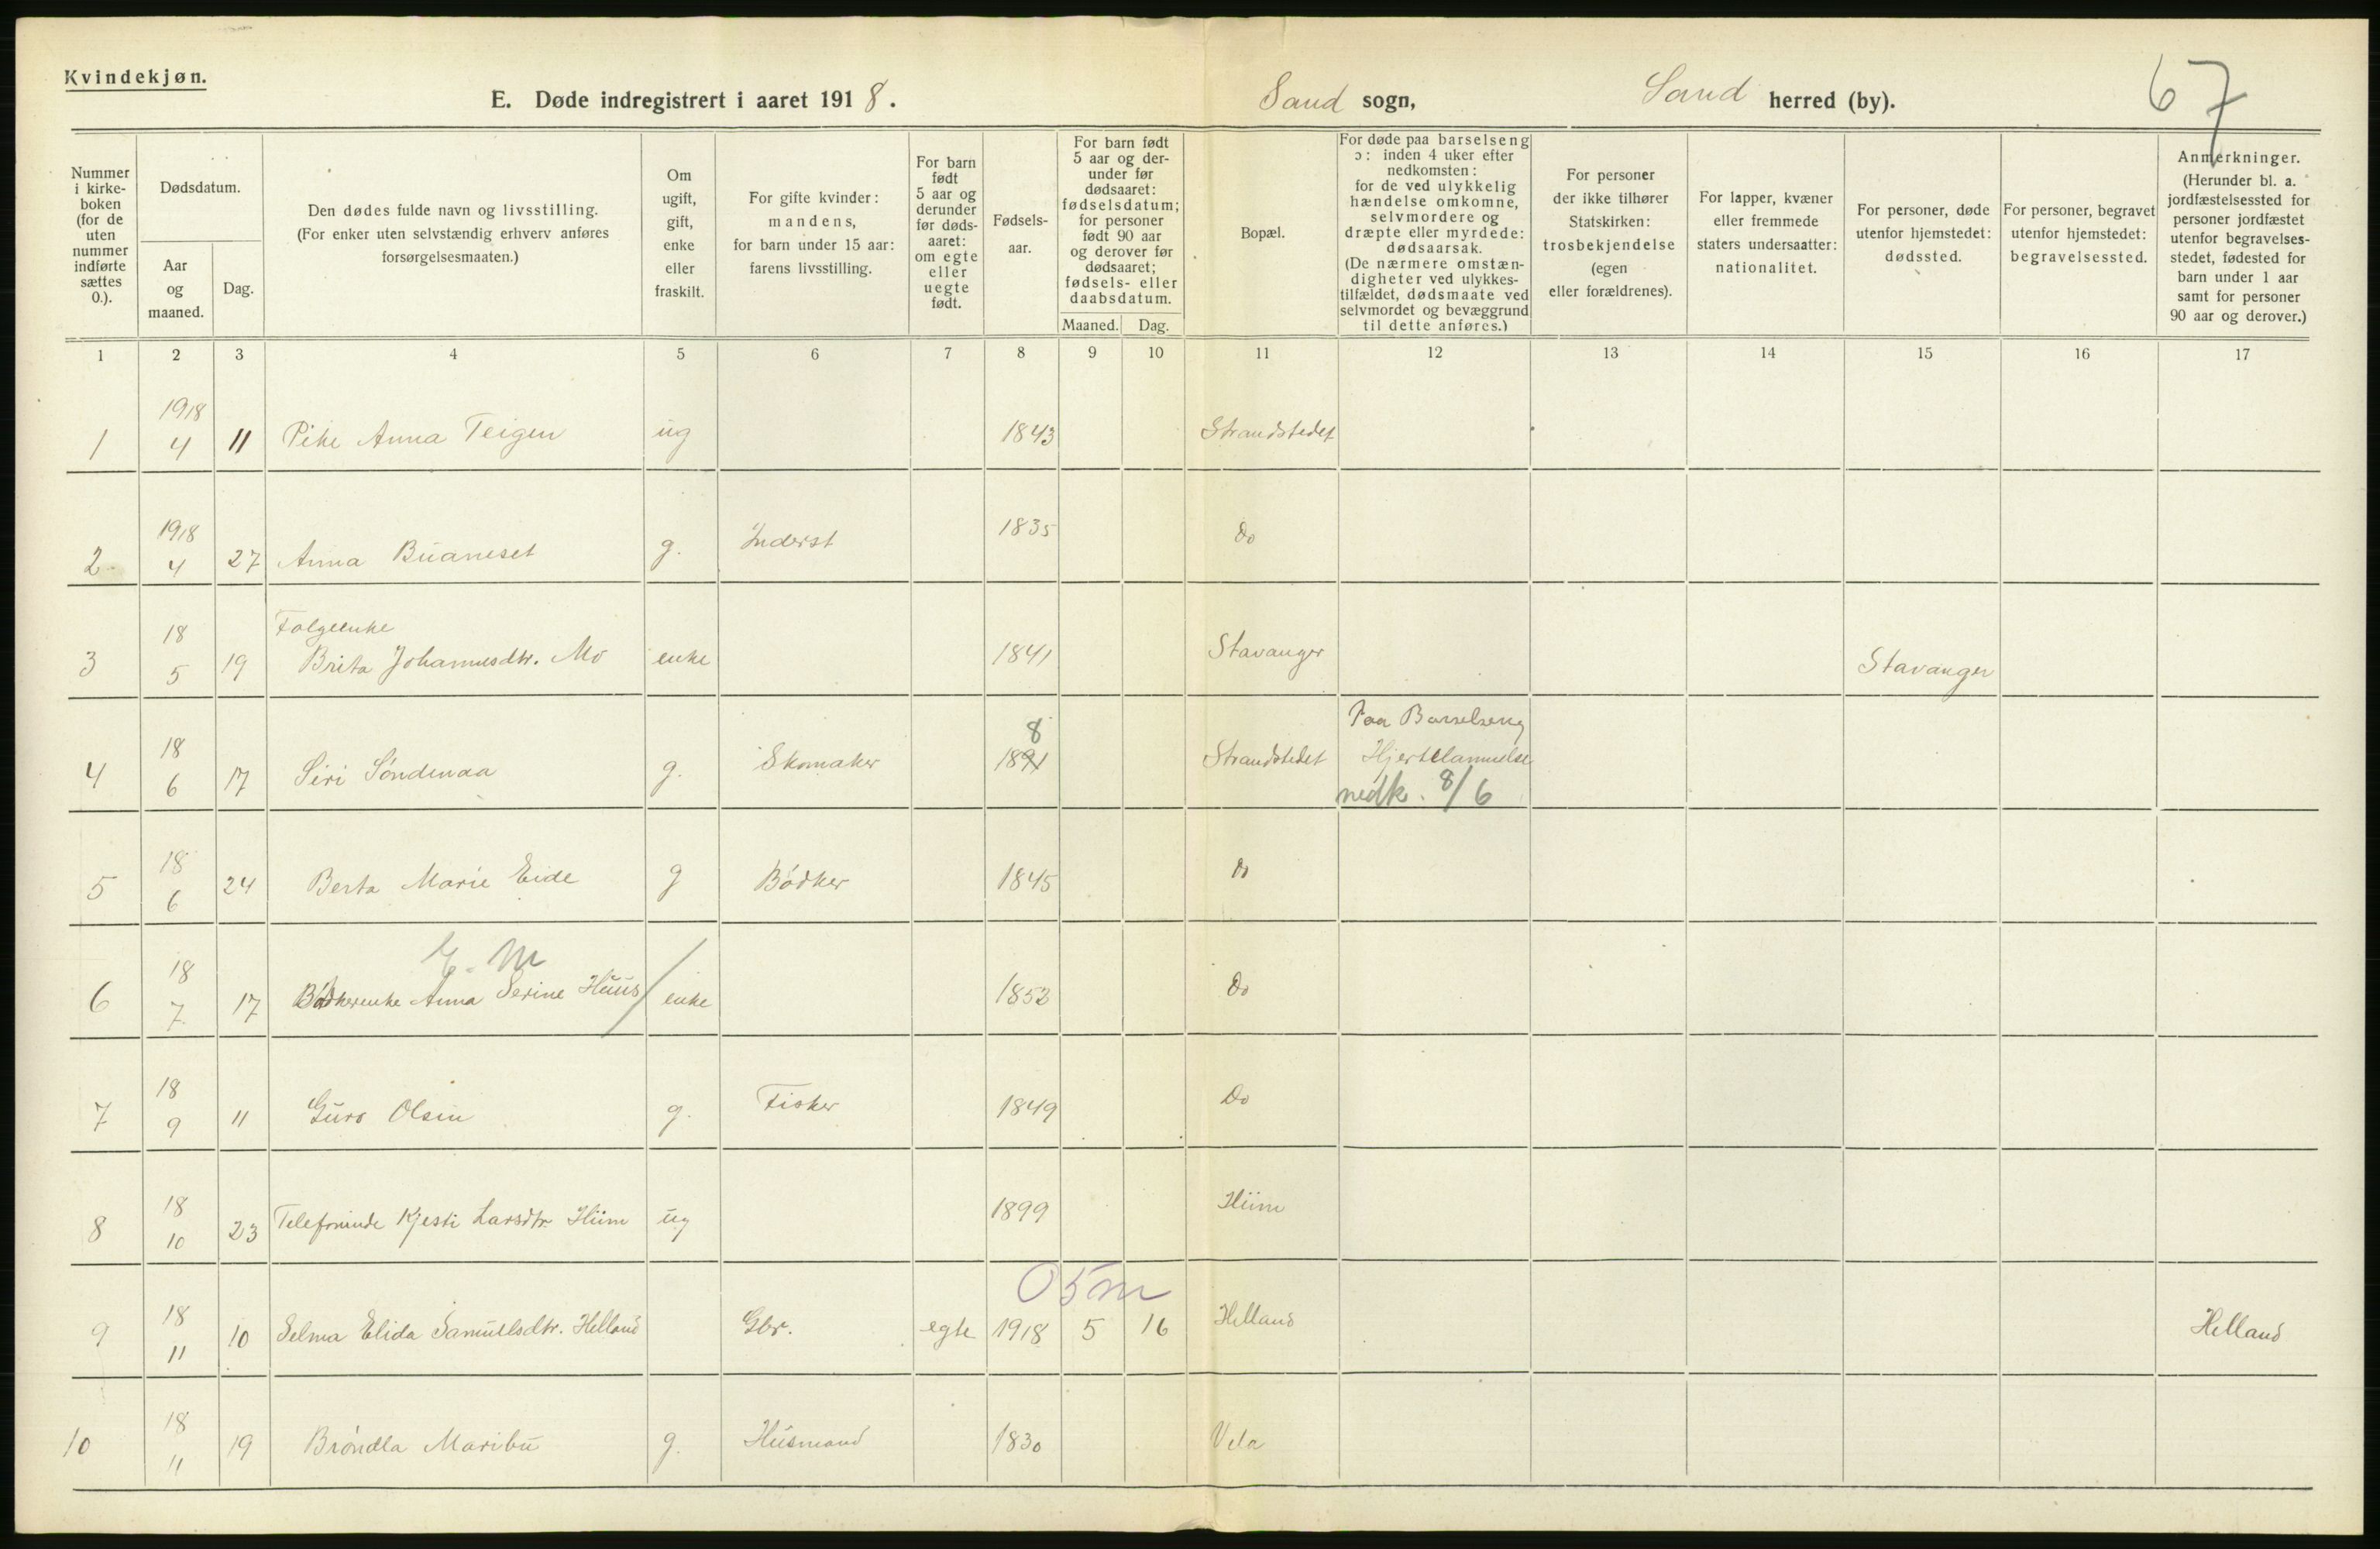 Kvindekjøn.
E. Døde indregistrert i aaret 1918.
Sand sogn,
Sand herred (by).
67
Nummer i kirkeboken (for de uten nummer indførte sættes 0.).
Dødsdatum.
Aar og maaned.
Dag.
Den dødes fulde navn og livsstilling.
(For enker uten selvstændig erhverv anføres forsørgelsesmaaten.)
Om ugift, gift, enke eller fraskilt.
For gifte kvinder: mandens, for barn under 15 aar: farens livsstilling.
For barn født 5 aar og derunder før dødsaaret: om egte eller uegte født.
Fødselsaar.
For barn født 5 aar og derunder før dødsaaret: fødselsdatum; for personer født 90 aar og derover før dødsaaret; fødsels- eller daabsdatum.
Maaned. Dag.
Bopæl.
For døde paa barselseng ɔ: inden 4 uker efter nedkomsten: for de ved ulykkelig hændelse omkomne, selvmordere og dræpte eller myrdede: dødsaarsak.
(De nærmere omstændigheter ved ulykkestilfældet, dødsmaate ved selvmordet og bevæggrund til dette anføres.)
For personer der ikke tilhører Statskirken: trosbekjendelse (egen eller forældrenes).
For lapper, kvæner eller fremmede staters undersaatter: nationalitet.
For personer, døde utenfor hjemstedet: dødssted.
For personer, begravet utenfor hjemstedet: begravelsessted.
Anmerkninger.
(Herunder bl. a. jordfæstelsessted for personer jordfæstet utenfor begravelsesstedet, fødested for barn under 1 aar samt for personer 90 aar og derover.)
1 2 3 4 5 6 7 8 9 10 11 12 13 14 15 16 17
1 1918 4 11 Pike Anna Teigen ug 1843 Strandstedet
2 1918 4 27 Anna Buaneset g. Inderst 1835 Do
3 18 5 19 Folgeenke Brita Johannesdtr. Mo enke 1841 Stavanger Stavanger
4 18 6 17 Siri Søndenaa g. Skomaker 1891 8 Strandstedet Paa Barselseng Hjertelammelse nedk. 8/6
5 18 6 24 Berta Marie Eide g Bødker 1845 Do
6 18 7 17 Bødkerenke Anna Serine Huus enke 1852 Do
7 18 9 11 Guro Olsen g. Fisker 1849 Do
8 18 10 23 Kjesti Larsdtr Hiim ug 1899 Hiim
05m
9 18 11 10 Selma Elida Samuelsdtr. Helland Gbr. egte 1918 5 16 Helland Helland
10 18 11 19 Brøndla Maribu g. Husmand 1830 Vela